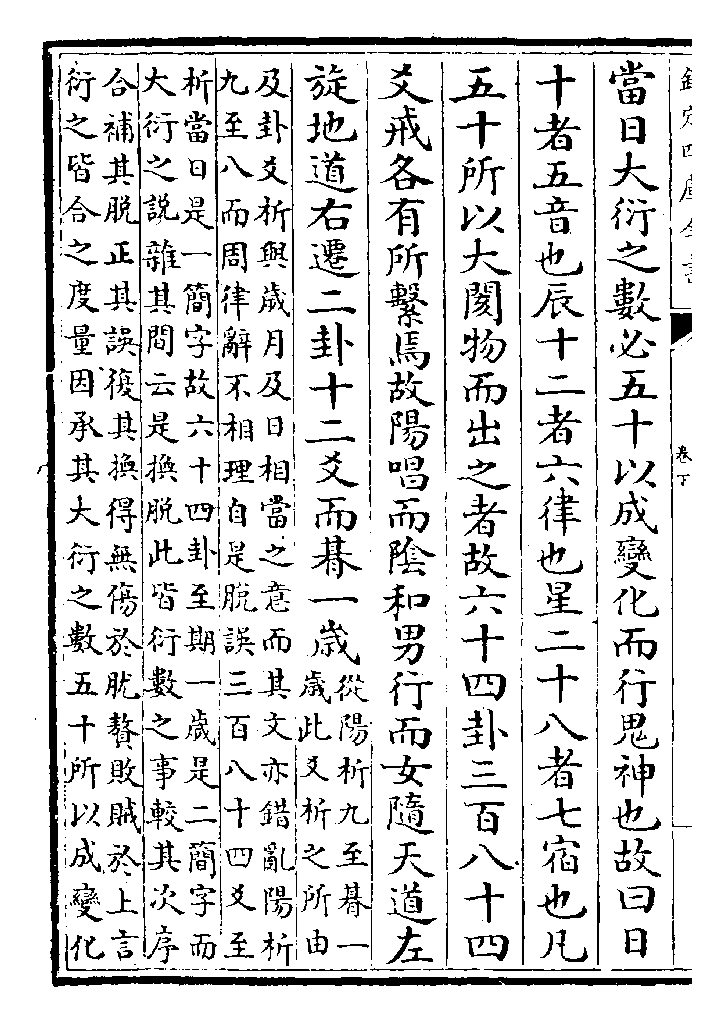 欽定四庫全書
卷下
當日大衍之數必五十以成變化而行鬼神也故曰日
十者五音也辰十二者六律也星二十八者七宿也凡
五十所以大閡物而出之者故六十四卦三百八十四
爻戒各有所繫焉故陽唱而陰和男行而女隨天道左
旋地道右遷二卦十二爻而朞一歳從陽析九至朞一
歳此爻析之所由
及卦爻析與歳月及日相當之意而其文亦錯亂陽析
九至八而周律辭不相理自是脫誤三百八十四爻至
析當日是一簡字故六十四卦至期一歳是二簡字而
大衍之說雜其間云是換脫此皆衍數之事較其次序
合補其脫正其誤復其換得無傷於肬贅敗賊於上言
衍之皆合之度量因承其大衍之數五十所以成變化